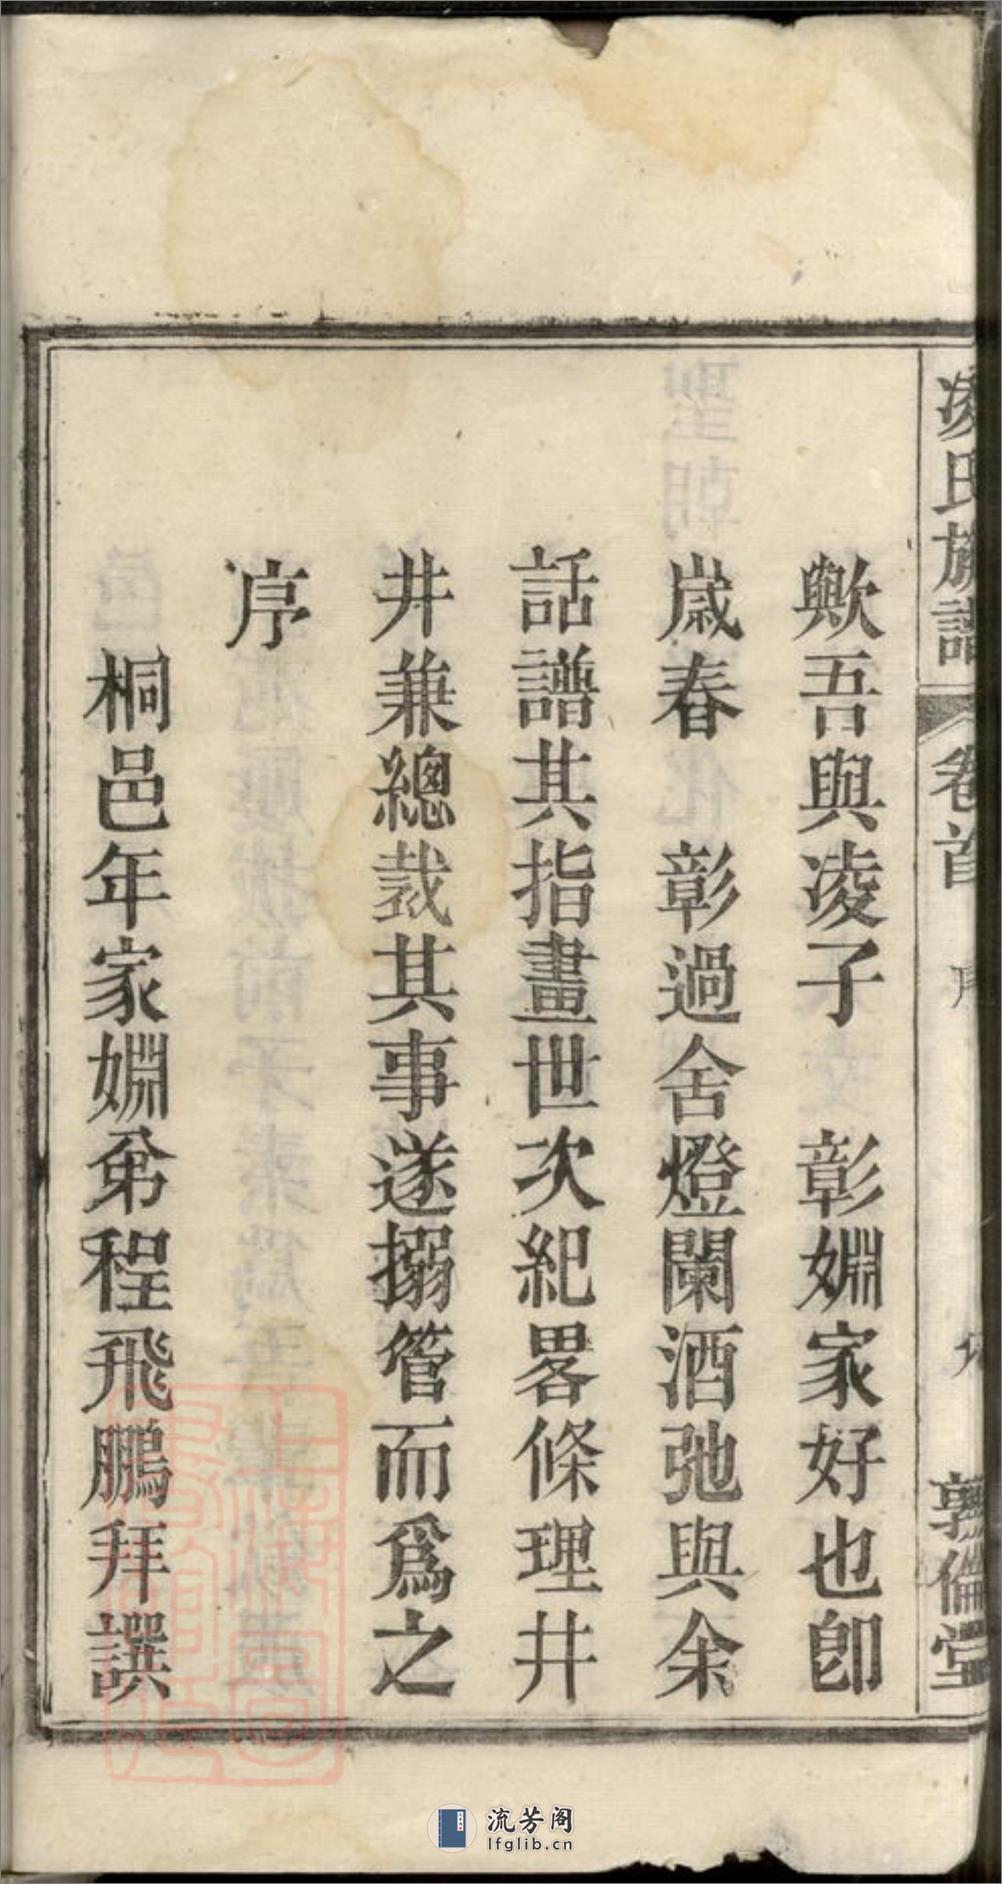 凌氏族譜 卷首 序 敦倫堂
歟吾與凌子 彰婣家好也卽
歲春 彰過舍燈闌酒弛與余
話譜其指畫世次紀畧條理井
井兼總裁其事遂搦管而爲之
序
桐邑年家婣弟程飛鵬拜譔
流芳阁
lfglib.cn